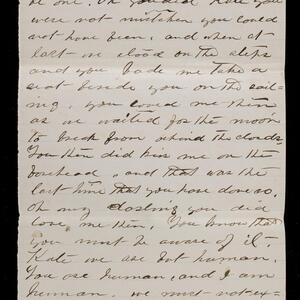 be one. Oh you dear Kate you
were not mistaken you could
not have been, and when at
last we stood on the steps
and you bade me take a
seat beside you on the rail-
ing, you loved me then
as we waited for the moon
to break from behind the clouds.
You then did kiss me on the
forehead, and that was the
last time that you have done so.
Oh my darling you did
love me then. You know that
you must be aware of it—
Kate we are but human.
You are human, and I am
human. we must not ex-